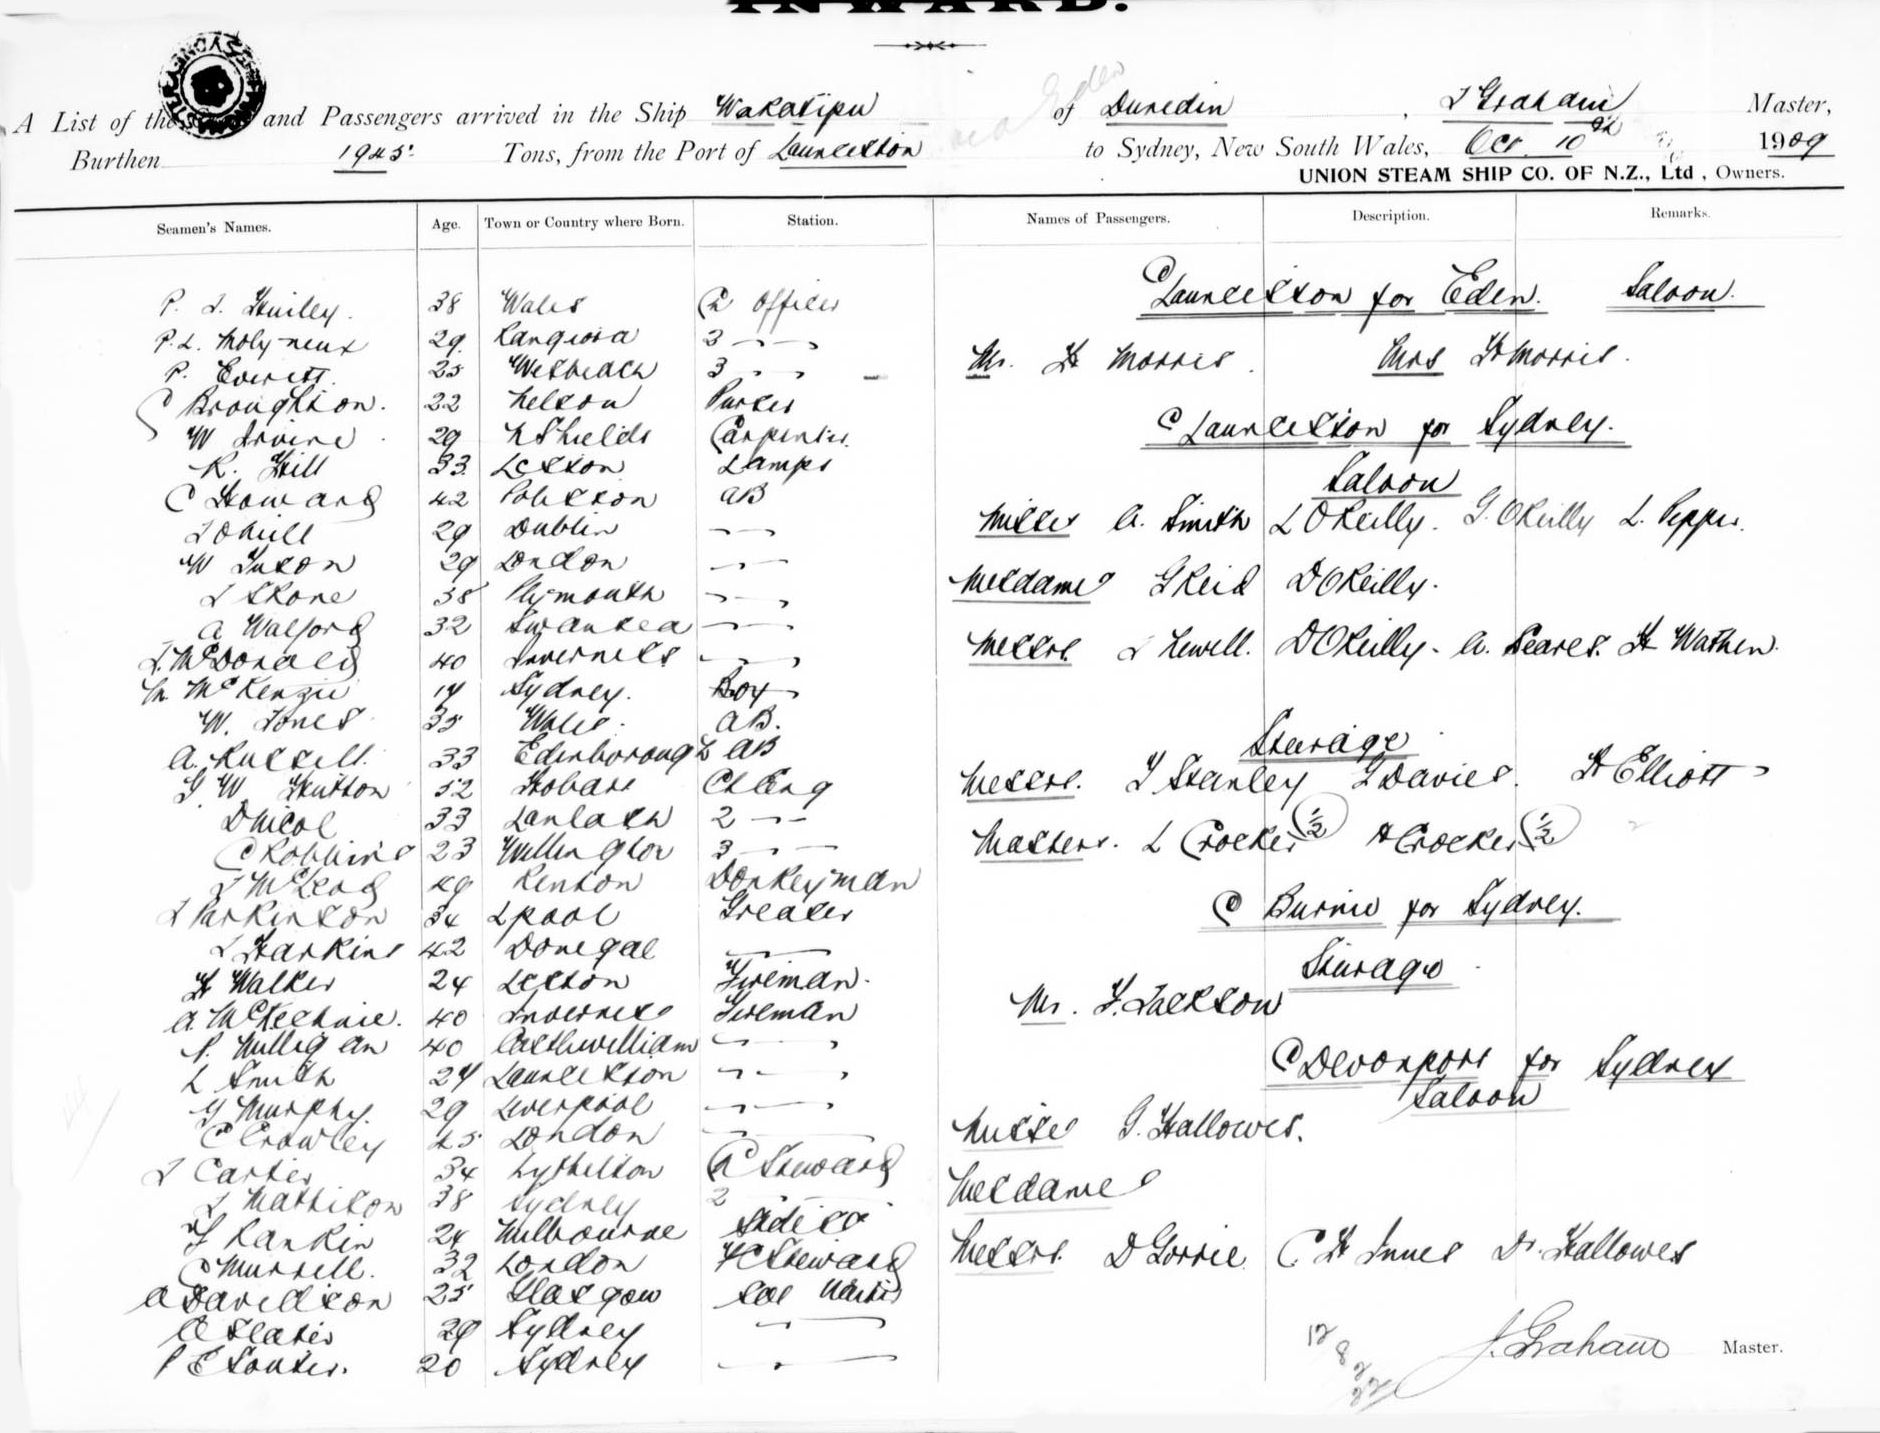 INWARD.
A List of the and Passengers arrived in the Ship Wakatipu of Dunedin , J Graham Master,
Burthen 1945 Tons, from the Port of Launceston to Sydney, New South Wales, Oct. 10th 1909
via Eden
UNION STEAM SHIP CO. OF N.Z., Ltd , Owners.
Seamen's Names. Age. Town or Country where Born. Station. Names of Passengers. Description. Remarks.
38 Wales Ch Officer
P. L. Molyneux 29 Rangiora 2
P. Everett 25 Wisbeach 3
C Broughton. 22 Nelson Purser
W Irvine 29 N Shields Carpenter.
R. Hill 33 Leston Lamps
C Howard 42 AB
J ONeill 29 Dublin
W 29 London
J Skone 38 Plymouth
A Walford 32 Swansea
J. McDonald 40 Inverness
M. McKenzie 17 Sydney. Boy
W. Jones 35 Wales. AB.
A. Russell 33 Edinborough AB
G W Hutton 52 Hobart Ch Eng
D Nicol 33 2
C Robbins 23 Wellington 3
J McLeod 49 Renton Donkeyman
J Parkinson 34 Lpool Greaser
J Harkins 42 Donegal
H Walker 24 Leston Fireman.
A. McKechnie. 40 Inverness Fireman
P. Milligan 40 Castlewilliam
L Smith 24 Launceston
G Murphy. 29 Liverpool
C Crowley 45 London
J Carter 34 Lyttelton Ch Steward
J Mathison 38 Sydney 2
F Rankin 24 Melbourne
C Murrell. 32 London FC Steward
A Davidson 25 Glasgow Sal Waiter
A Slater 29 Sydney
P E Souter. 20 Sydney
Launceston for Eden. Saloon.
Mr. H Morris. Mrs H Morris.
Launceston for Sydney.
Saloon
Misses A. Smith L OReilly. G. OReilly L. Pepper.
Mesdames G Reid D OReilly.
Messrs. J Newell. D OReilly. A. Seares. H Wathen.
Steerage
Messrs. J Stanley G Davies. H Elliott
Masters. L Crocker 1/2 A Crocker 1/2
Burnie for Sydney.
Steerage
Mr. F. Jackson
Devonport for Sydney
Saloon
Misses G. Hallowes.
Mesdames
Messrs. D Gorrie C. H Innes Dr. Hallowes
12
8
2
22
J. Graham Master.